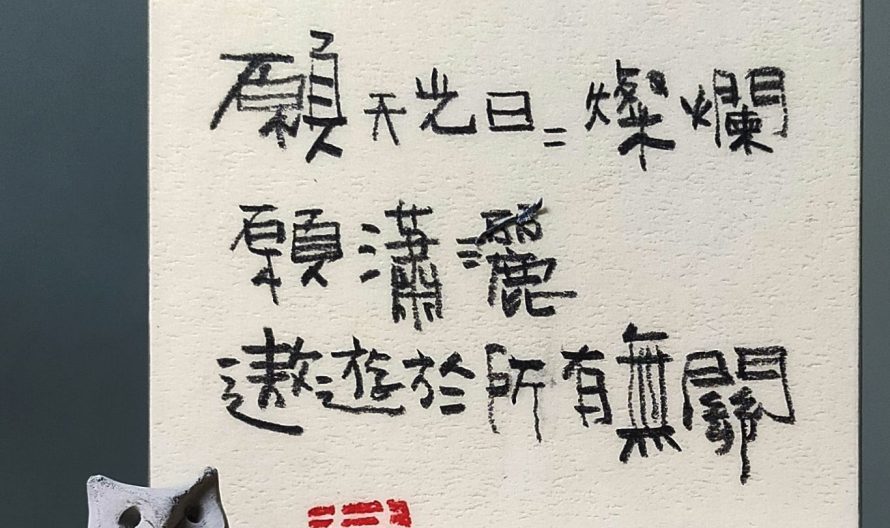 願天光日=燦爛
願瀟灑
遨遊於所有無關